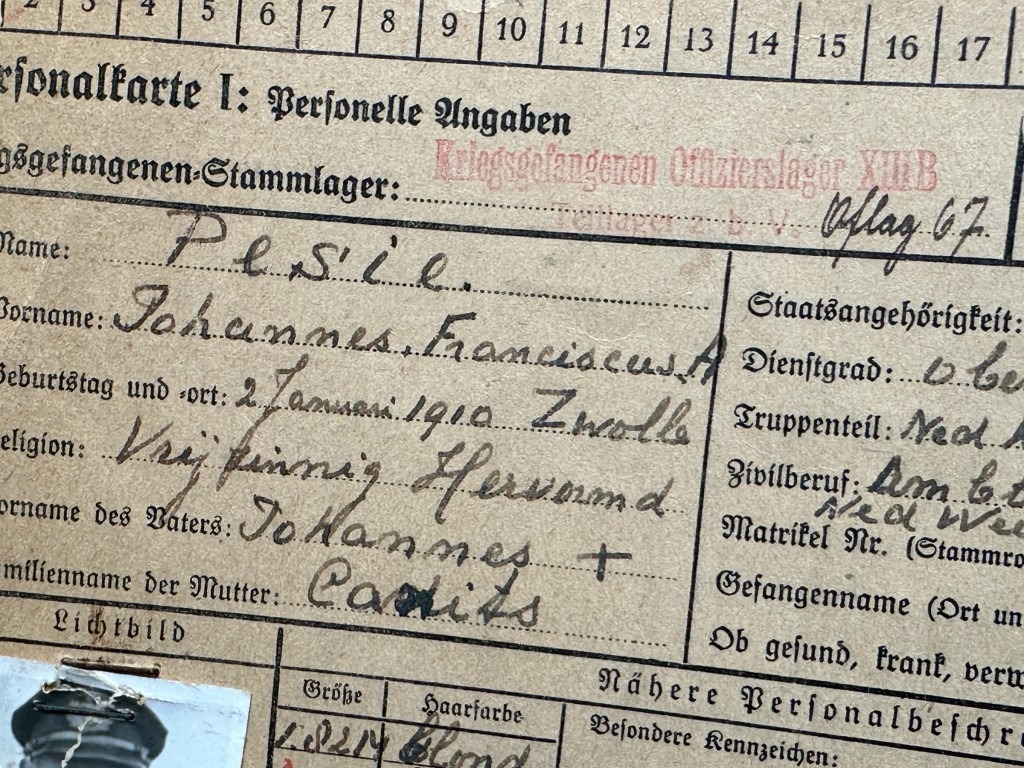 2 3 4 5 6 7 8 9 10 11 12 13 14 15 16 17
rsonalkarte I: Personelle Angaben
gsgefangenen-Stammlager: Kriegsgefangenen Offizierslager XIII B
Teillager z. b. V. Oflag 67
Name: Pesie.
Vorname: Johannes, Franciscus, A
Geburtstag und -ort: 2 Januari 1910 Zwolle
eligion: Vrijzinnig Hervormd
orname des Vaters: Johannes +
amilienname der Mutter:
Staatsangehörigkeit:
Dienstgrad: Obe
Truppenteil: Ned
Zivilberuf: Ambt
Ned
Matrikel Nr. (Stammro
Gefangenname (Ort un
Ob gesund, krank, verw
Lichtbild
Nähere Personalbeschr
Größe Haarfarbe Besondere Kennzeichen:
1.82M blond